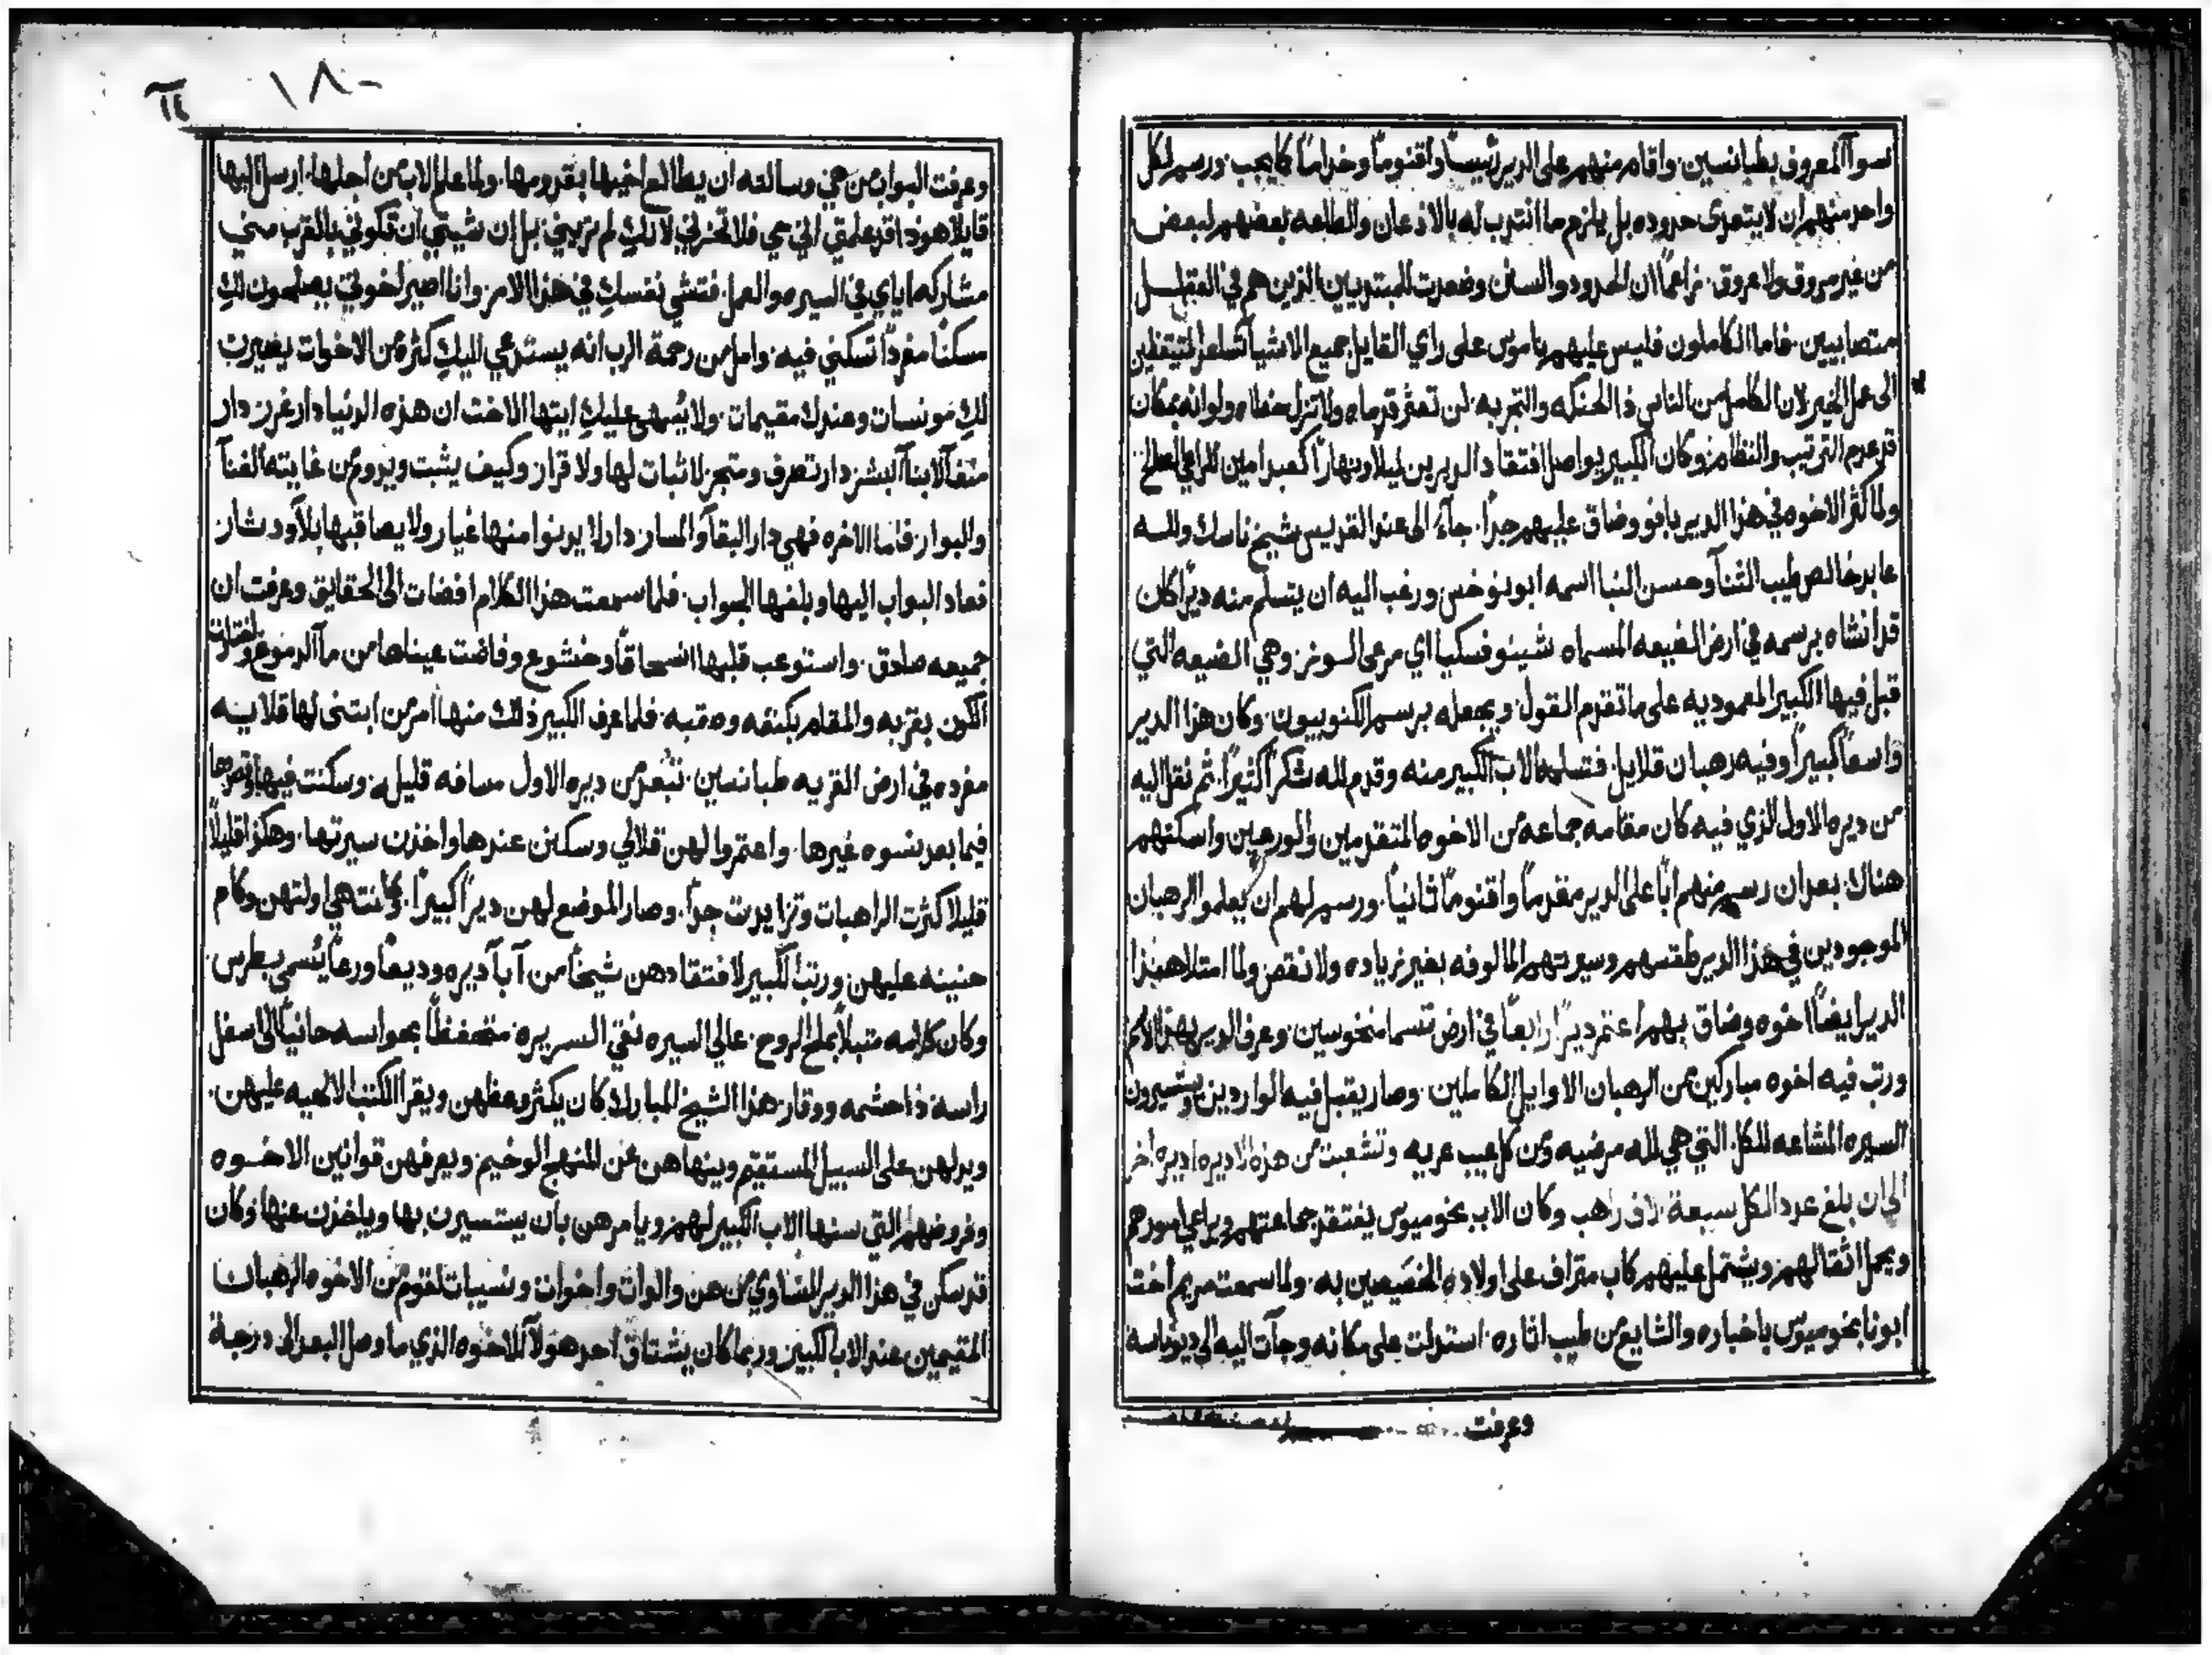 سوآ المعروف بطبانسين. واقام منهم على الدير رئيسا واقنوما وخداما كما يجب. ورسم لكل
واحد منهم ان لا يتعدى حدوده بل يلزم ما انتدب له بالاذعان والطاعه بعضهم لبعض
من غير مروق ولا عروق. زاعما ان الحدود والسنن وضعت للمبتديين الذين هم في العقل
متصابيين. فاما الكاملون فليس عليهم ناموس على راي القايل جميع الاشيآ تساعد المتيقظين
الى عمل الخير لان الكامل من الناس ذا الحنكه والتجربه. لن تعثر قدماه ولا تزل خطاه ولو انه بمكان
قد عدم الترتيب والنظام. وكان الكبير يواصل افتقاد الديرين ليلا ونهارا كعبد امين للراعي الصالح.
ولما كثر الاخوه في هذا الدير بافو وضاق عليهم جدا. جآء الى عند القديس شيخ ناسك ولله
عابد خالص طيب الثنآ وحسن النبا اسمه ابونوخس ورغب اليه ان يتسلم منه ديرا كان
قد انشاه برسمه في ارض الضيعه المسماه شينوفسكيا اي مرعى السوز. وهي الضيعه التي
قبل فيها الكبير المعموديه على ما تقدم القول. ويجعله برسم الكنوبيون. وكان هذا الدير
واسعا كبيرا وفيه رهبان قلايل. فتسلمه الاب الكبير منه وقدم لله شكرا كثيرا. ثم نقل اليه
من ديره الاول الذي فيه كان مقامه جماعه من الاخوه المتقدمين والورعين واسكنهم
هناك. بعد ان رسم منهم ابا على الدير مقدما واقنوما ثانيا. ورسم لهم ان يعلموا الرهبان
الموجودين في هذا الدير طقسهم وسيرتهم المالوفه بغير زياده ولا نقص ولما امتلا هذا
الدير ايضا اخوه وضاق بهم اعتمر ديرا رابعا في ارض تتسما منخوسين. وعرف الدير بهذا الاسم
ورتب فيه اخوه مباركين من الرهبان الاوايل الكاملين. وصار يقبل فيه الواردين ويسيرون
السيره المشاعه للكل. التي هي لله مرضيه ومن كل عيب عريه وتشعبت من هذه الاديره اديره اخر
الى ان بلغ عدد الكل سبعة الاف راهب وكان الاب بخوميوس يفتقد جماعتهم ويراعي امورهم
ويحمل اثقالهم. ويشتمل عليهم كاب متراف على اولاده الخصيصين به. ولما سمعت مريم اخت
ابونا بخوميوس باخباره والشايع من طيب اثاره. استدلت على مكانه وجآت اليه الى دير ناسه
وعرفت
١٨٠
وعرفت البواب من هي وسالته ان يطالع اخيها بقدومها. ولما علم الاب من اجلها. ارسل اليها
قايلا هوذا قد علمتي اني حي فلا تحزني لانك لم تريني. بل ان شيتي ان تكوني بالقرب مني
مشاركه اياي في السيره والعمل. فتشي نفسك في هذا الامر. وانا اصير اخوتي يصلحون لك
مسكنا مفردا تسكني فيه. وامل من رحمة الرب انه يستدعي اليك كثره من الاخوات يصيرت
لك مونسات وعندك مقيمات. ولا ينبهى عليك ايتها الاخت ان هذه الدنيا دار غرر. دار
منفآ لابنآ البشر. دار تصرف ومتجر. لا ثبات لها ولا قرار وكيف يثبت ويدوم من غايته الفنآ
والبوار. فاما الاخره فهي دار البقآ والمسار. دار لا يدنوا منها غيار ولا يصاقبها بلآ ودثار
فعاد البواب اليها وبلغها الجواب. فلما سمعت هذا الكلام افضات الى الحقايق وعرفت ان
جميعه صادق. واستوعب قلبها انسحاقا وخشوع وفاضت عيناها من مآ الدموع واختارت
الكون بقربه والمقام بكنفه وصقبه. فلما عرف الكبير ذلك منها امر من ابتنى لها قلاينه
مفرده في ارض القريه طبانسين. تبعد من ديره الاول مسافه قليله. وسكنت فيها وقصدها
فيما بعد نسوه غيرها. واعتمروا لهن قلالي وسكنن عندها واخذن سيرتها. وهكذا قليلا
قليلا كثرت الراهبات وتزايدت جدا. وصار الموضع لهن ديرا كبيرا. وكانت هي اولتهن وكام
حنينه عليهن ورتب الكبير لافتقادهن شيخا من آبآ ديره وديعا ورعا يسمى بطرس.
وكان كلامه متبلا بملح الروح. عالي السيره نقي السريره. متحفظا بحواسه حانيا الى اسفل
راسه ذا حشمه ووقار. هذا الشيخ المبارك كان يكثر وعظهن ويقرا الكتب الالهيه عليهن.
ويدلهن على السبيل المستقيم وينهاهن عن المنهج الوخيم. ويعرفهن قوانين الاخوه
وفروضهم التي سنها الاب الكبير لهم. ويامرهن بان يستسيرن بها وياخذن عنها وكان
قد سكن في هذا الدير النساوي من هن والدات واخوات ونسيبات لقوم من الاخوه الرهبان
المقيمين عند الاب الكبير. وربما كان يشتاق احد هولآ الاخوه الذي ما وصل البعد الى درجة